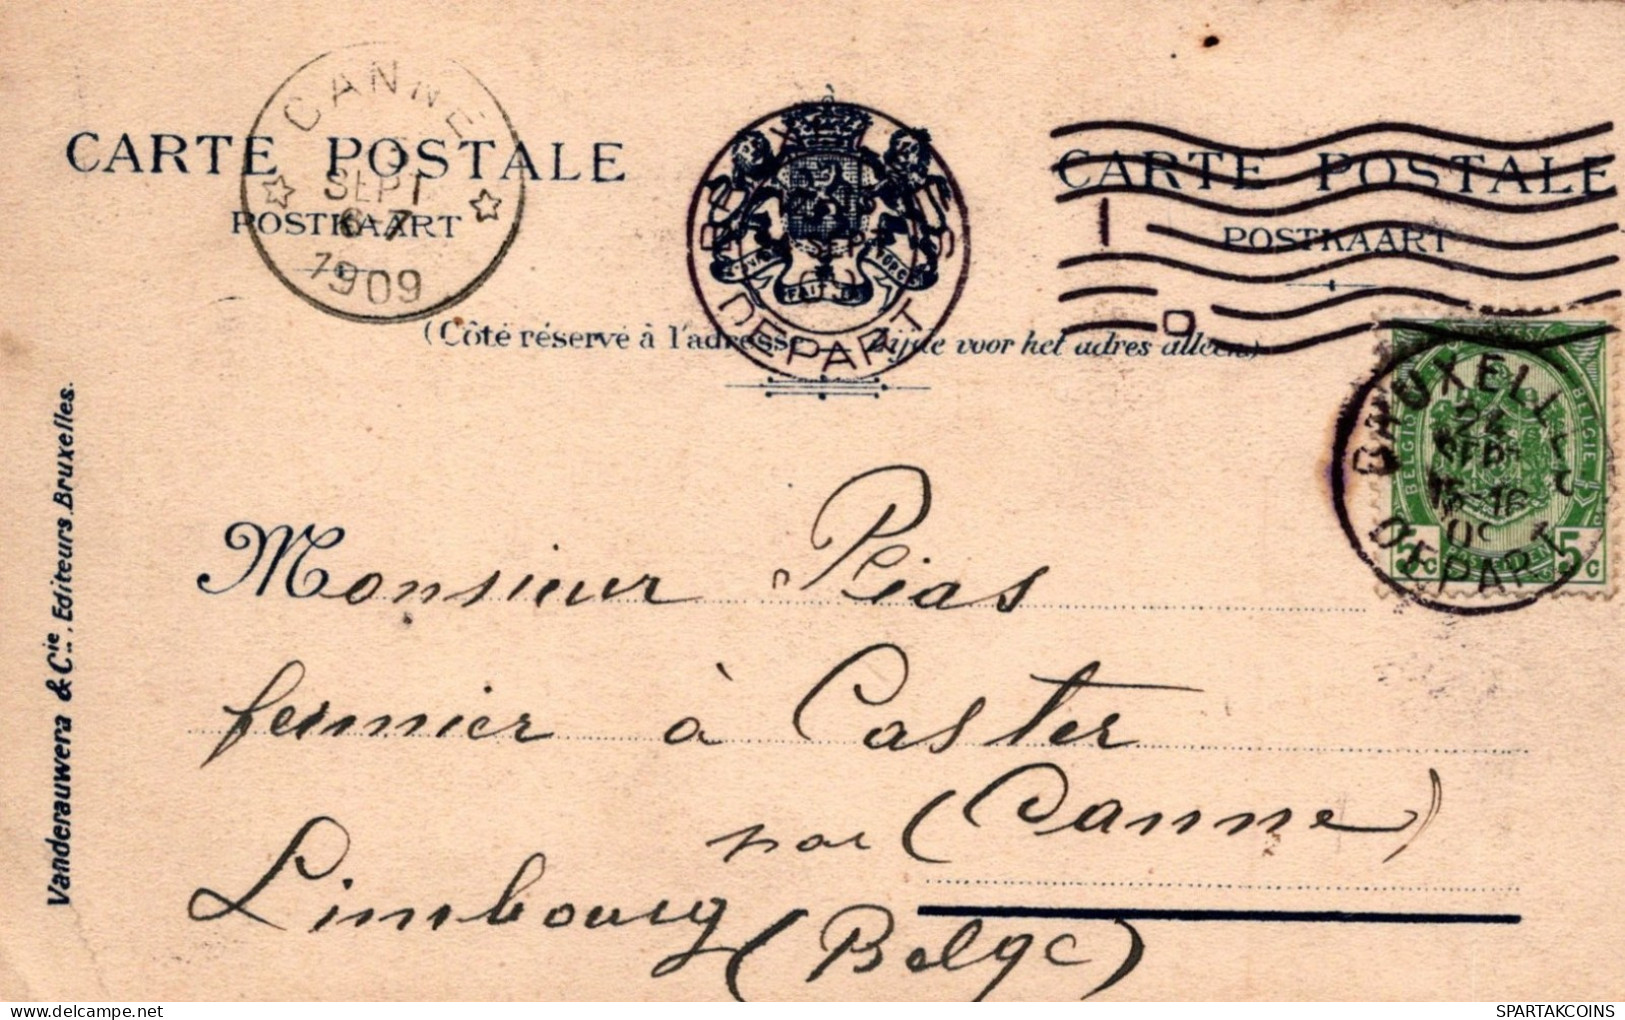 CANNE
SEPT
6-7
1909
CARTE POSTALE
POSTKAART
DEPART
FAIT
CARTE POSTALE
POSTKAART
(Côté réservé à l'adresse — Zijde voor het adres alleen)
BRUXELLES
24
SEPT
15-16
09
DEPART
BELGIQUE
BELGIE
5 c
5 c
Monsieur Plas
fermier à Caster
par (Canne)
Limbourg (Belge)
Vanderauwera & Cie., Editeurs, Bruxelles.
WWW.SPARTAKCOINS.COM
SPARTAKCOINS